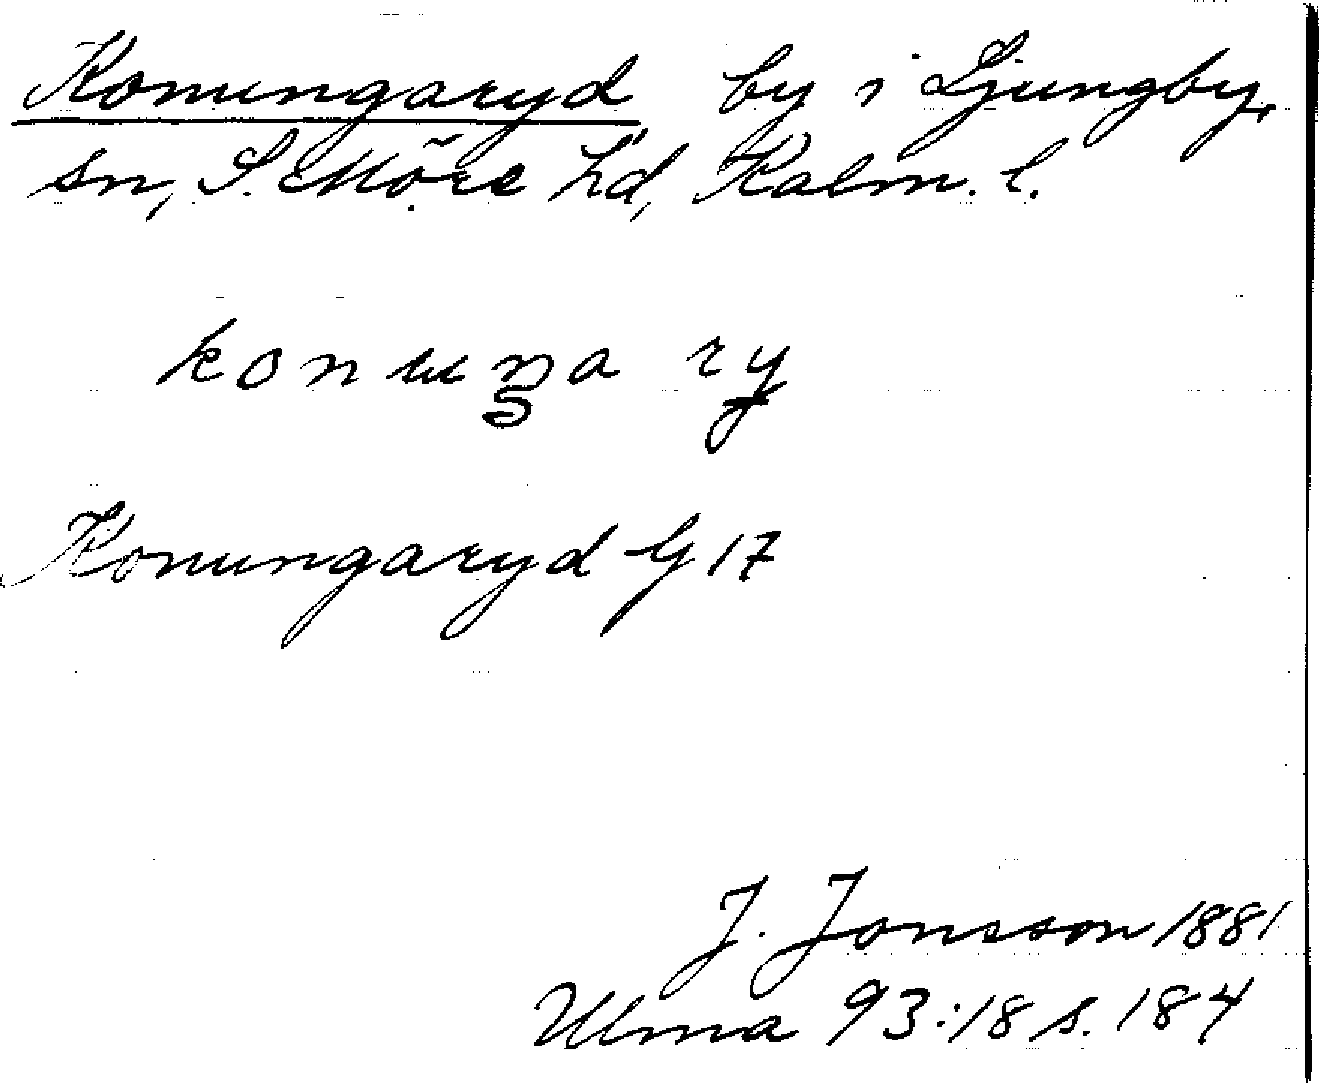 Konungaryd by i Ljungby,
sn, S. Möre hd, Kalm. l.
konuŋa ry
Konungaryd G 17
J. Jonsson 1881
Ulma 93:18 s. 184